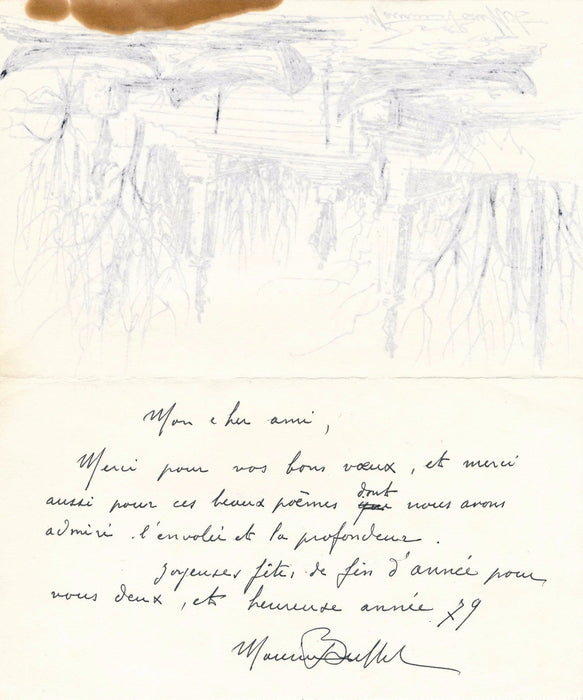 Mon cher ami,
Merci pour vos bons vœux, et merci
aussi pour ces beaux poèmes dont nous avons
admiré l'envolée et la profondeur.
Joyeuses fêtes de fin d'année pour
vous deux, et heureuse année 79
Maurice Buffet